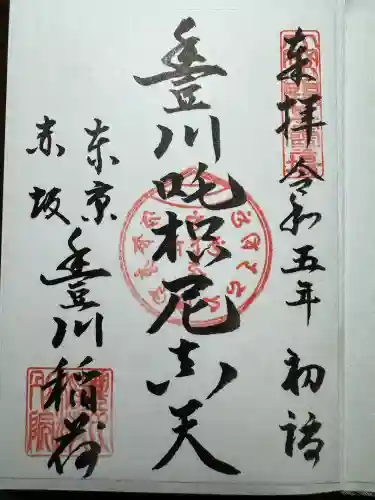 来拝 令和五年 初詣
豊川吒枳尼真天
東京
赤坂
豊川稲荷